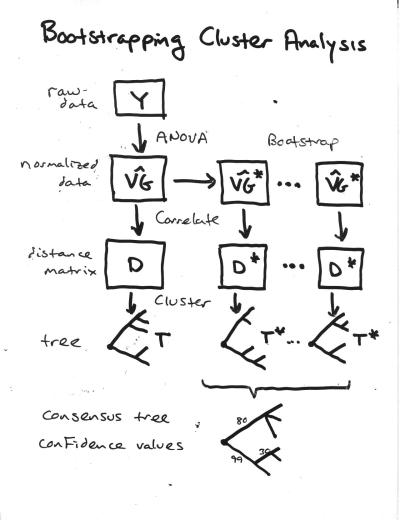 Bootstrapping Cluster Analysis
raw-
data
Y
ANOVA
Bootstrap
normalized
data
V̂G
V̂G*
...
V̂G*
Correlate
distance
matrix
D
D*
...
D*
Cluster
tree
T
T*
...
T*
consensus tree
confidence values
80
99
30